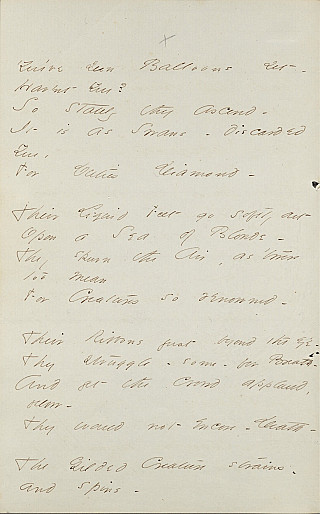 +
You've seen Balloons set -
Haven't You?
So stately they ascend -
It is as Swans - discarded
You,
For Duties Diamond -
Their Liquid Feet go softly out
Upon a Sea of Blonde -
They spurn the Air, as 'twere
too mean
For Creatures so renowned -
Their Ribbons just beyond the Eye -
They struggle - some - for Breath -
And yet the Crowd applaud,
below -
They would not encore - Death -
The Gilded Creature strains -
and spins -